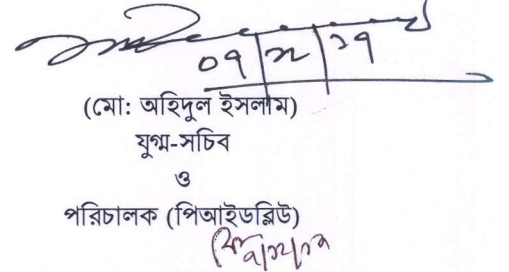 ০৭|১২|১৭
(মো: অহিদুল ইসলাম)
যুগ্ম-সচিব
ও
পরিচালক (পিআইডব্লিউ)